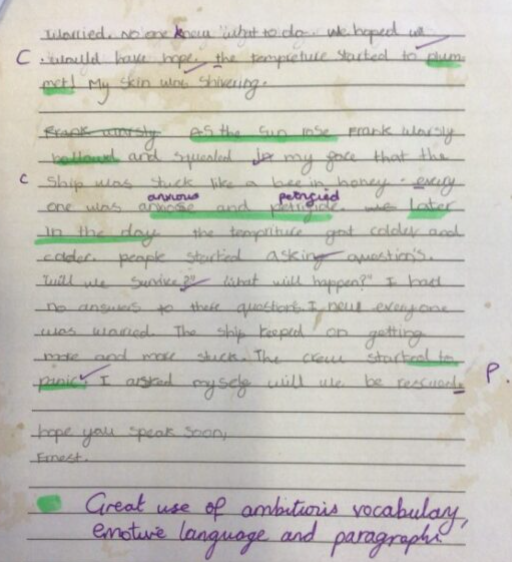 worried. no one knew what to do. we hoped we
C . would have hope. the tempreture started to plum
met! My skin was shivering.
Frank warsly As the sun rose Frank Warsly
bellowd and squealed in my face that the
C Ship was stuck like a bee in honey. every
anxious petrified
one was anxiose and petrifide. we later
in the day the tempriture got colder and
colder. people started asking question's.
"will we survive?" "What will happen?" I had
no answers to there questions I new everyone
was worried. The ship keeped on getting
more and more stuck. The crew started to
panic! I asked myself will we be rescued. P.
hope you speak soon,
Ernest.
Great use of ambitious vocabulary,
emotive language and paragraphs